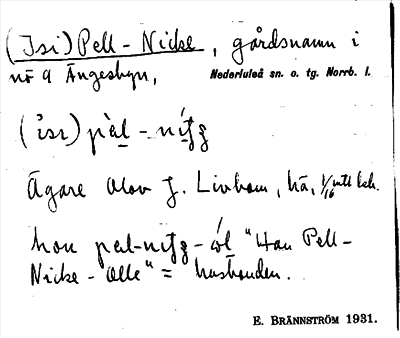 (Isi) Pell-Nicke, gårdsnamn i
nö 9 Ängesbyn, Nederluleå sn. o. tg. Norrb. l.
Ägare Olov J. Livbom, hä, 1/16 mtl
hon "Han Pell-
Nicke-Olle" = husbonden.
E. BRÄNNSTRÖM 1931.